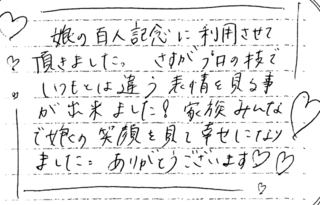 娘の百人記念に利用させて
頂きました。さすがプロの技で
いつもとは違う表情を見る事
が出来ました!家族みんな
で娘の笑顔を見て幸せになり
ました。ありがとうございます♡♡